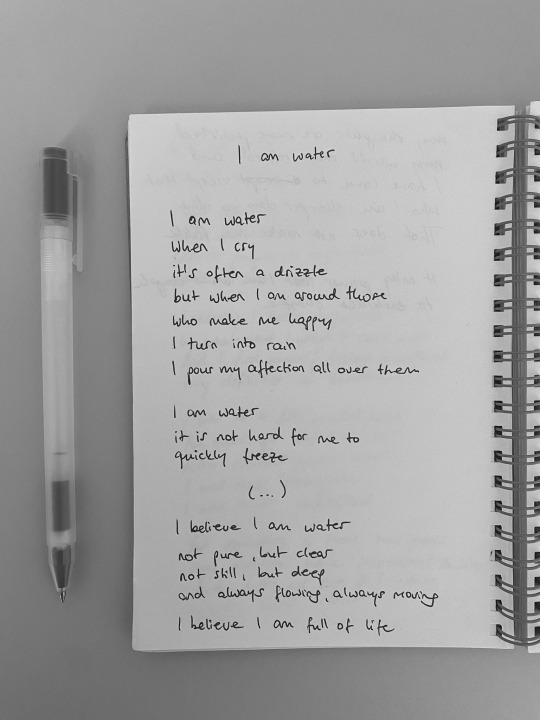 I am water
I am water
when I cry
it's often a drizzle
but when I am around those
who make me happy
I turn into rain
I pour my affection all over them
I am water
it is not hard for me to
quickly freeze
(...)
I believe I am water
not pure, but clear
not still, but deep
and always flowing, always moving
I believe I am full of life